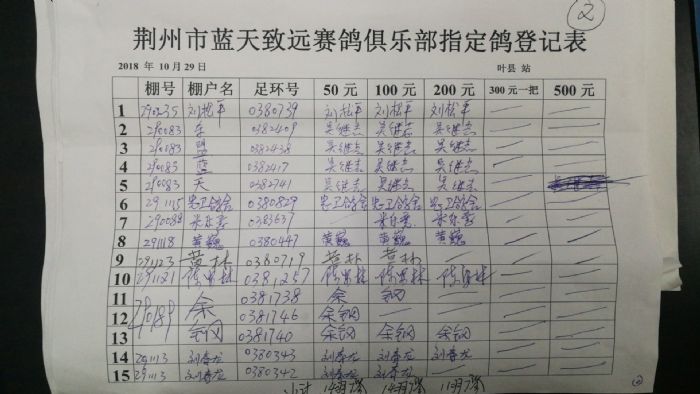 ②
荆州市蓝天致远赛鸽俱乐部指定鸽登记表
2018 年 10 月 29 日 叶县 站
棚号 棚户名 足环号 50 元 100 元 200 元 300 元一把 500 元
1 290235 刘松平 0380739 刘松平 刘松平 刘松平 — —
2 290083 东 0382409 吴继志 吴继志 吴继志 — —
3 290083 盟 0382438 吴继志 吴继志 吴继志 — —
4 290083 蓝 0382417 吴继志 吴继志 吴继志 — —
5 290083 天 0382741 吴继志 吴继志 吴继志 —
6 291115 忠卫鸽舍 0380829 忠卫鸽舍 忠卫鸽舍 忠卫鸽舍 — —
7 290088 米东 0383637 — 米东 — — —
8 291118 黄巍 0380447 黄巍 黄巍 黄巍 — —
9 291123 黄林 0380719 — —
10 291121 陈 林 0381257 陈 林 陈 林 陈 林 — —
11 余 0381738 余 钢 — —
12 290189 0381746 余钢 — — — —
13 余钢 0381740 余钢 余钢 余钢 — —
14 291113 刘春龙 0380343 刘春龙 刘春龙 刘春龙 — —
15 291113 刘春龙 0380342 刘春龙 刘春龙 — — —
小计 14 14 11